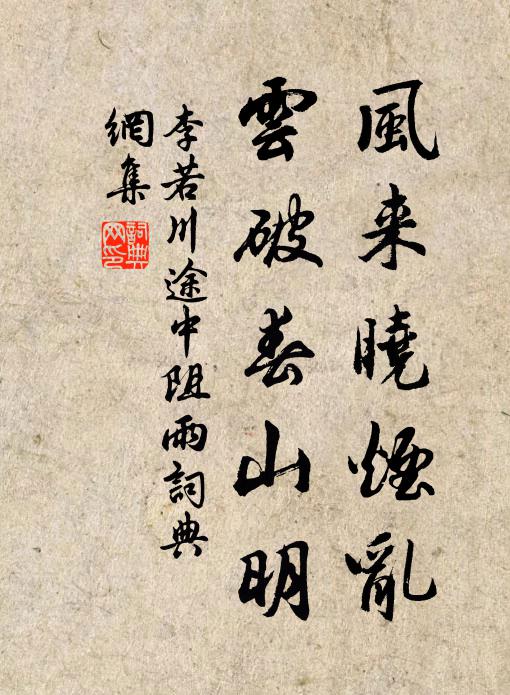 風来曉煙亂
雲破春山明
李若川途中阻雨詞典
網集
詞典
网印